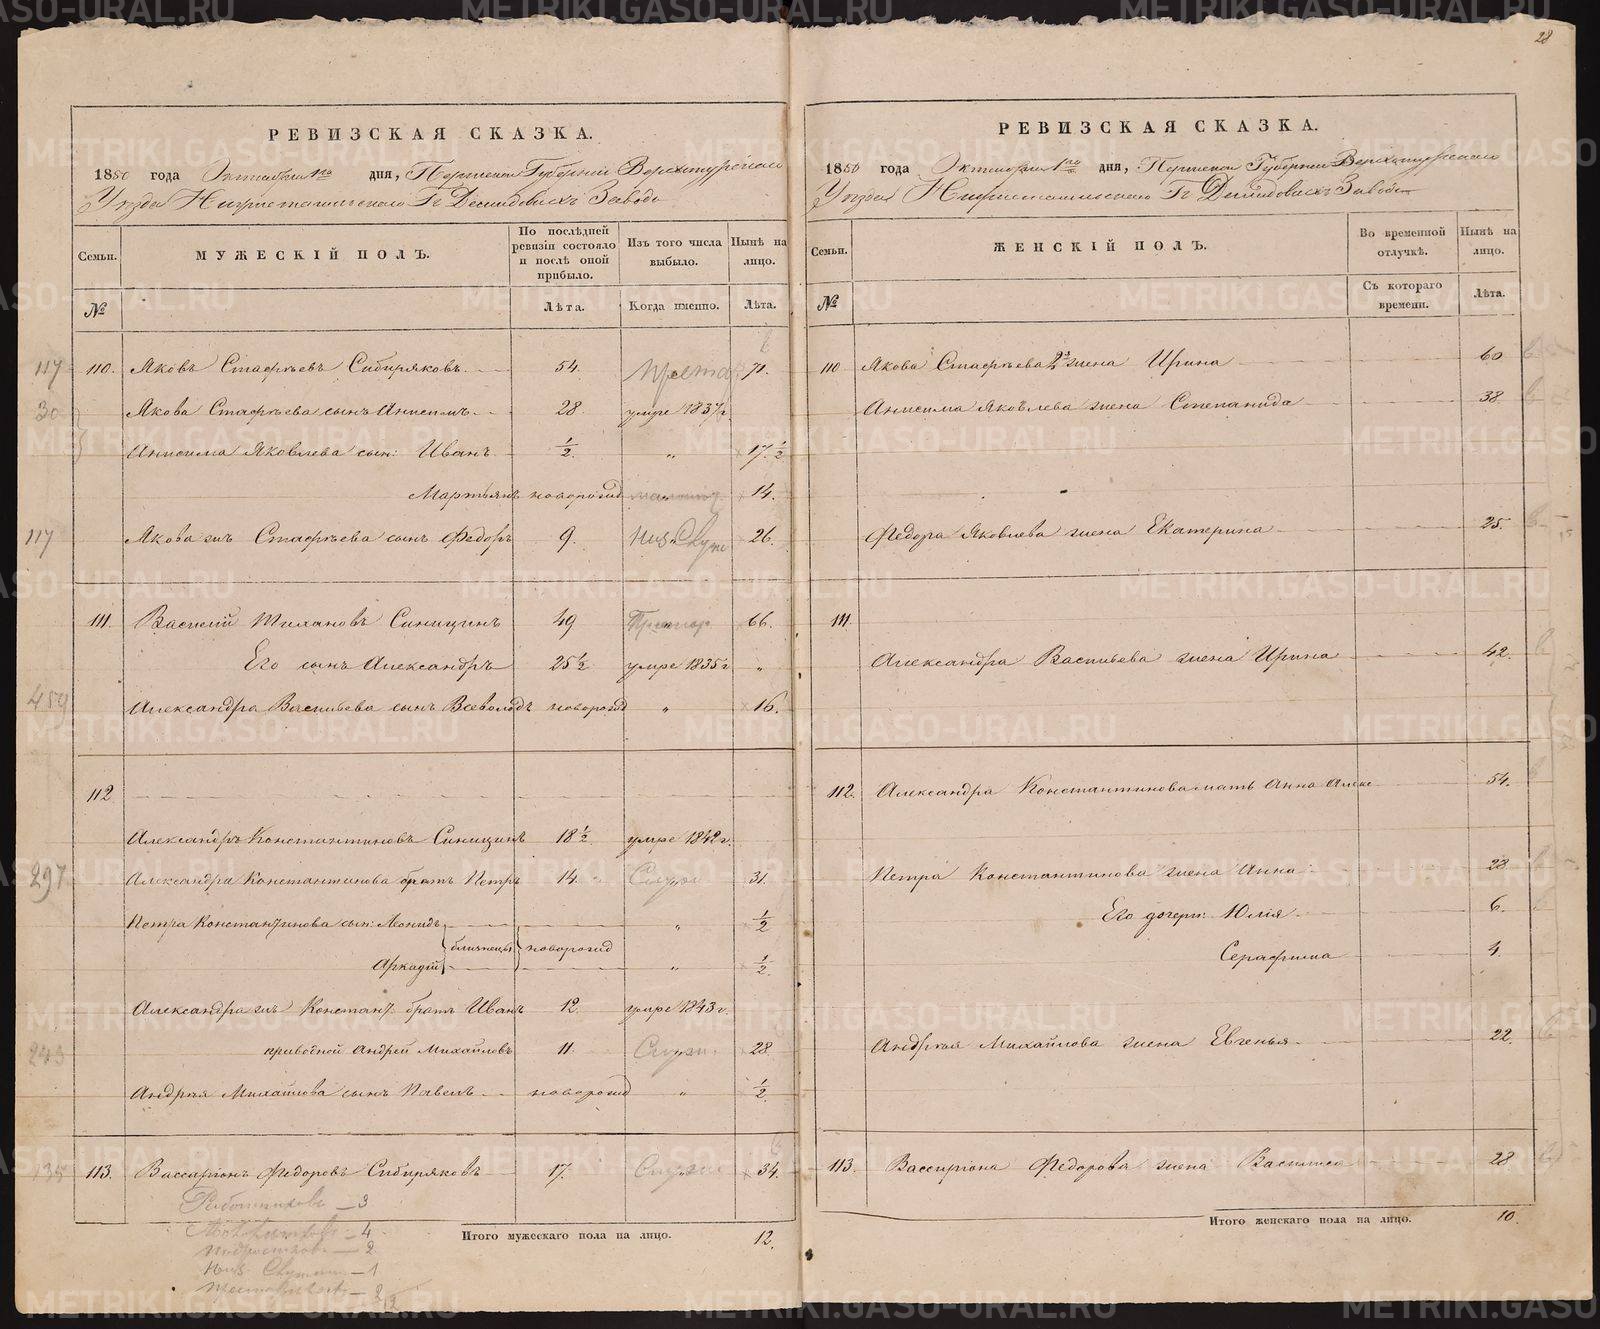 28
РЕВИЗСКАЯ СКАЗКА.
1850 года Октября 1го дня, Пермской Губернии Верхотурскаго
Уезда Нижнетагильскаго Гг Демидовыхъ Завода
Семьи. МУЖЕСКІЙ ПОЛЪ. По послѣдней ревизіи состояло и послѣ оной прибыло. Изъ того числа выбыло. Нынѣ на лицо.
№ Лѣта. Когда именно. Лѣта.
117 110. Яковъ Стафѣевъ Сибиряковъ 54. 71.
30 Якова Стафѣева сынъ Анисимъ 28 умре 1837г
Анисима Яковлева сын: Иванъ 1/2 „ 17 1/2
Мартьянъ новорожд 14.
117 Якова жъ Стафѣева сынъ Федоръ 9. 26.
111. Василий Синицынъ 49 66.
Его сынъ Александръ 25 1/2 умре 1835г „
459 Александра Васильева сынъ Всеволодъ новорожд „ 16.
112
Александръ Константиновъ Синицынъ 18 1/2 умре 1842г.
297 Александра Константинова братъ Петръ 14. 31.
Петра Константинова сын: Леонидъ „ 1/2
близнецы новорожд
Аркадій „ 1/2
Александра жъ Констант. братъ Иванъ 12. умре 1843г.
243 Андрей Михайловъ 11. 28.
Андрея Михайлова сынъ Павелъ новорожд „ 1/2
113. Вассаріонъ Федоровъ Сибиряковъ 17. 34.
3
4
2
1
2
12
Итого мужескаго пола на лицо. 12.
РЕВИЗСКАЯ СКАЗКА.
1850 года Октября 1го дня, Пермской Губернии Верхотурскаго
Уезда Нижнетагильскаго Гг Демидовыхъ Завода
Семьи. ЖЕНСКІЙ ПОЛЪ. Во временной отлучкѣ. Нынѣ на лицо.
№ Съ котораго времени. Лѣта.
110 Якова Стафѣева 2я жена Ирина 60
Анисима Яковлева жена Степанида 38.
Федора Яковлева жена Екатерина 25.
111.
Александра Васильева жена Ирина 42.
112. Александра Константинова мать Анна 54.
Петра Константинова жена Анна 28
Его дочери: Юлія 6.
Серафима 4.
Андрея Михайлова жена Евгенья 22.
113. Вассаріона Федорова жена Василиса 28
Итого женскаго пола на лицо. 10.
METRIKI.GASO-URAL.RU